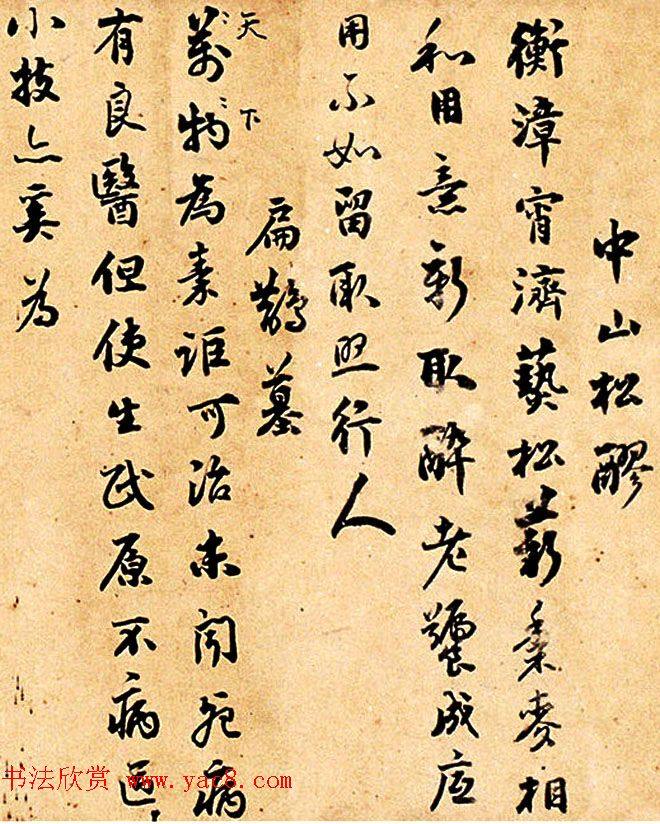 中山松醪
衡漳宵濟藝松薪黍麥相
和用意新取醉老饕成底
用不如留取照行人
扁鵲墓
天下
萬物為詎可治未聞死病
有良醫但使生民原不病區〻
小技亦奚為
书法欣赏 www.yac8.com